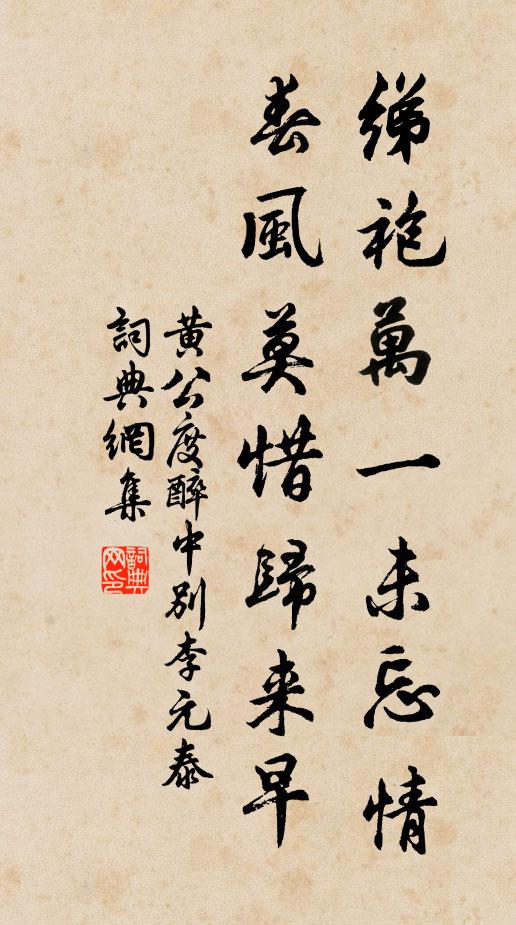 綈袍萬一未忘情
春風莫惜歸來早
黃公度醉中別李元泰
詞典網集
詞典網印